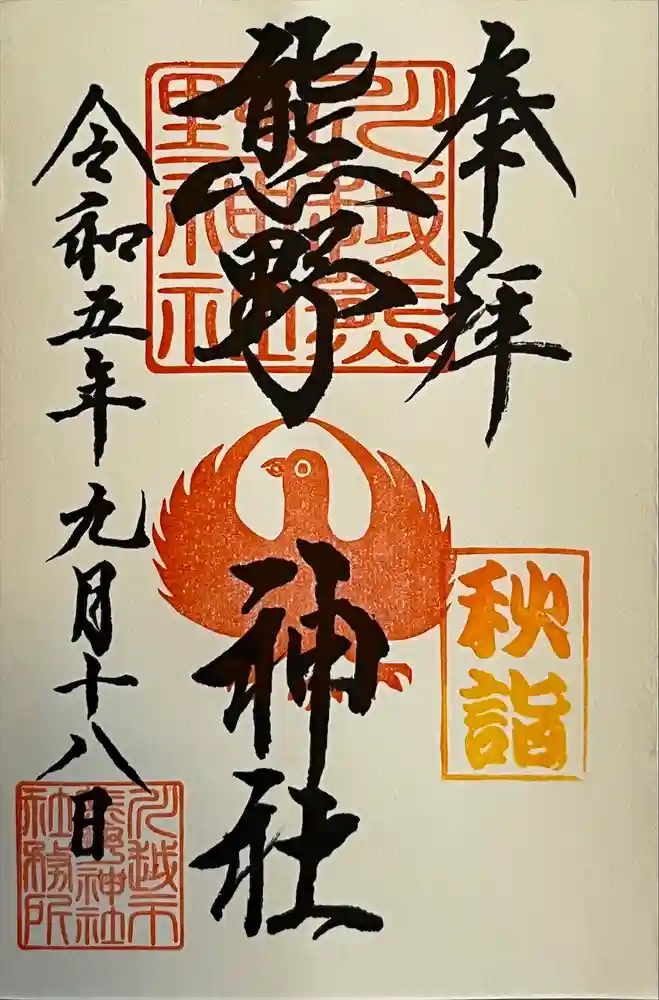 奉拝
川越熊野神社
熊野神社
秋詣
令和五年九月十八日
川越市
熊野神社
社務所